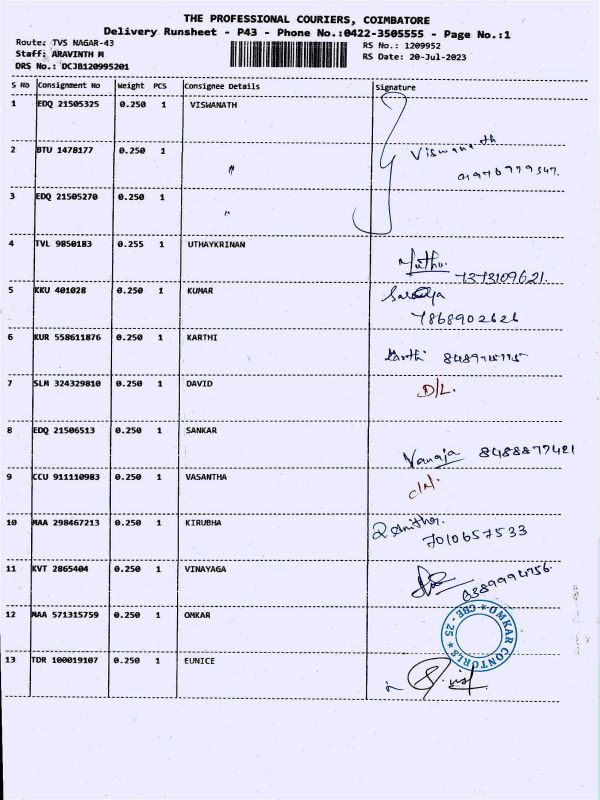 THE PROFESSIONAL COURIERS, COIMBATORE
Delivery Runsheet - P43 - Phone No.:0422-3505555 - Page No.:1
Route: TVS NAGAR-43
RS No.: 1209952
Staff: ARAVINTH M
RS Date: 20-Jul-2023
DRS No.: DCJB120995201
S No Consignment No Weight PCS Consignee Details Signature
1 EDQ 21505325 0.250 1 VISWANATH
2 BTU 1478177 0.250 1 〃 Viswanath
3 EDQ 21505270 0.250 1 〃
4 TVL 9850183 0.255 1 UTHAYKRINAN
Muthu 7373109621
5 KKU 401028 0.250 1 KUMAR
7868902626
6 KUR 558611876 0.250 1 KARTHI
Karthi
7 SLM 324329810 0.250 1 DAVID D/L.
8 EDQ 21506513 0.250 1 SANKAR
Vanaja 8488877421
9 CCU 911110983 0.250 1 VASANTHA
10 MAA 298467213 0.250 1 KIRUBHA
7010657533
11 KVT 2865404 0.250 1 VINAYAGA
12 MAA 571315759 0.250 1 OMKAR
OMKAR CONTORLS ★ CBE - 25 ★
13 TDR 100019107 0.250 1 EUNICE